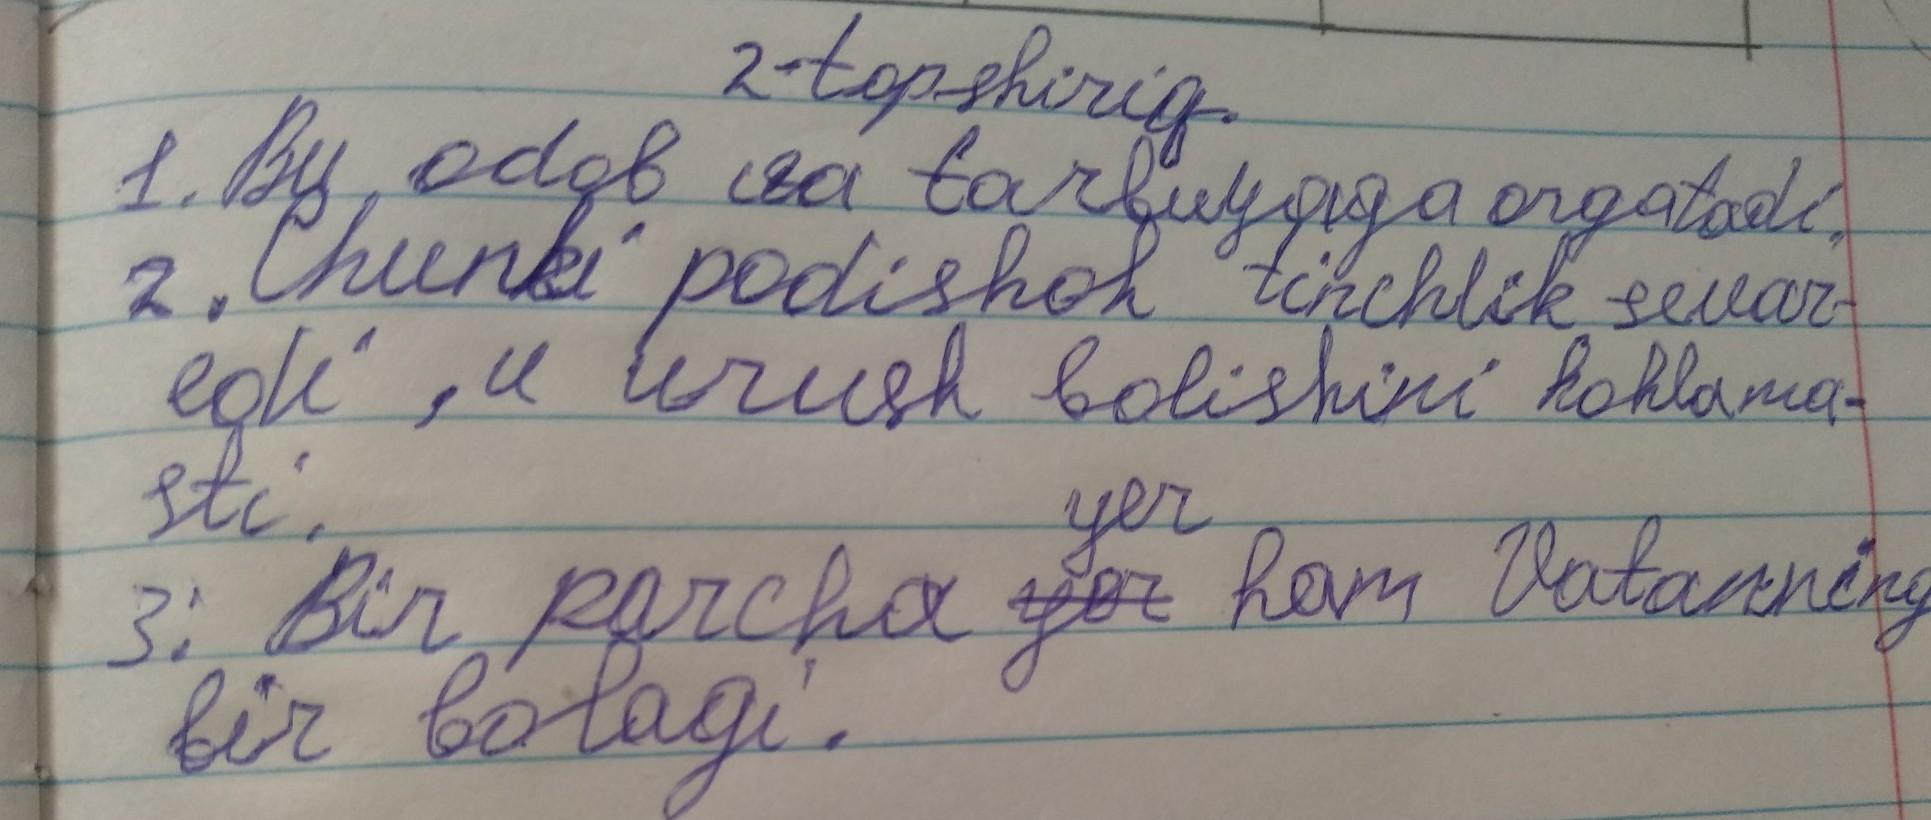 2-topshiriq.
1. Bu odob va tarbuyaga orgatadi.
2. Chunki podishoh tinchlik sevar-
edi, u urush bolishini hohlama-
sti.
yer
3. Bir parcha yor ham Vatanning
bir bolagi.